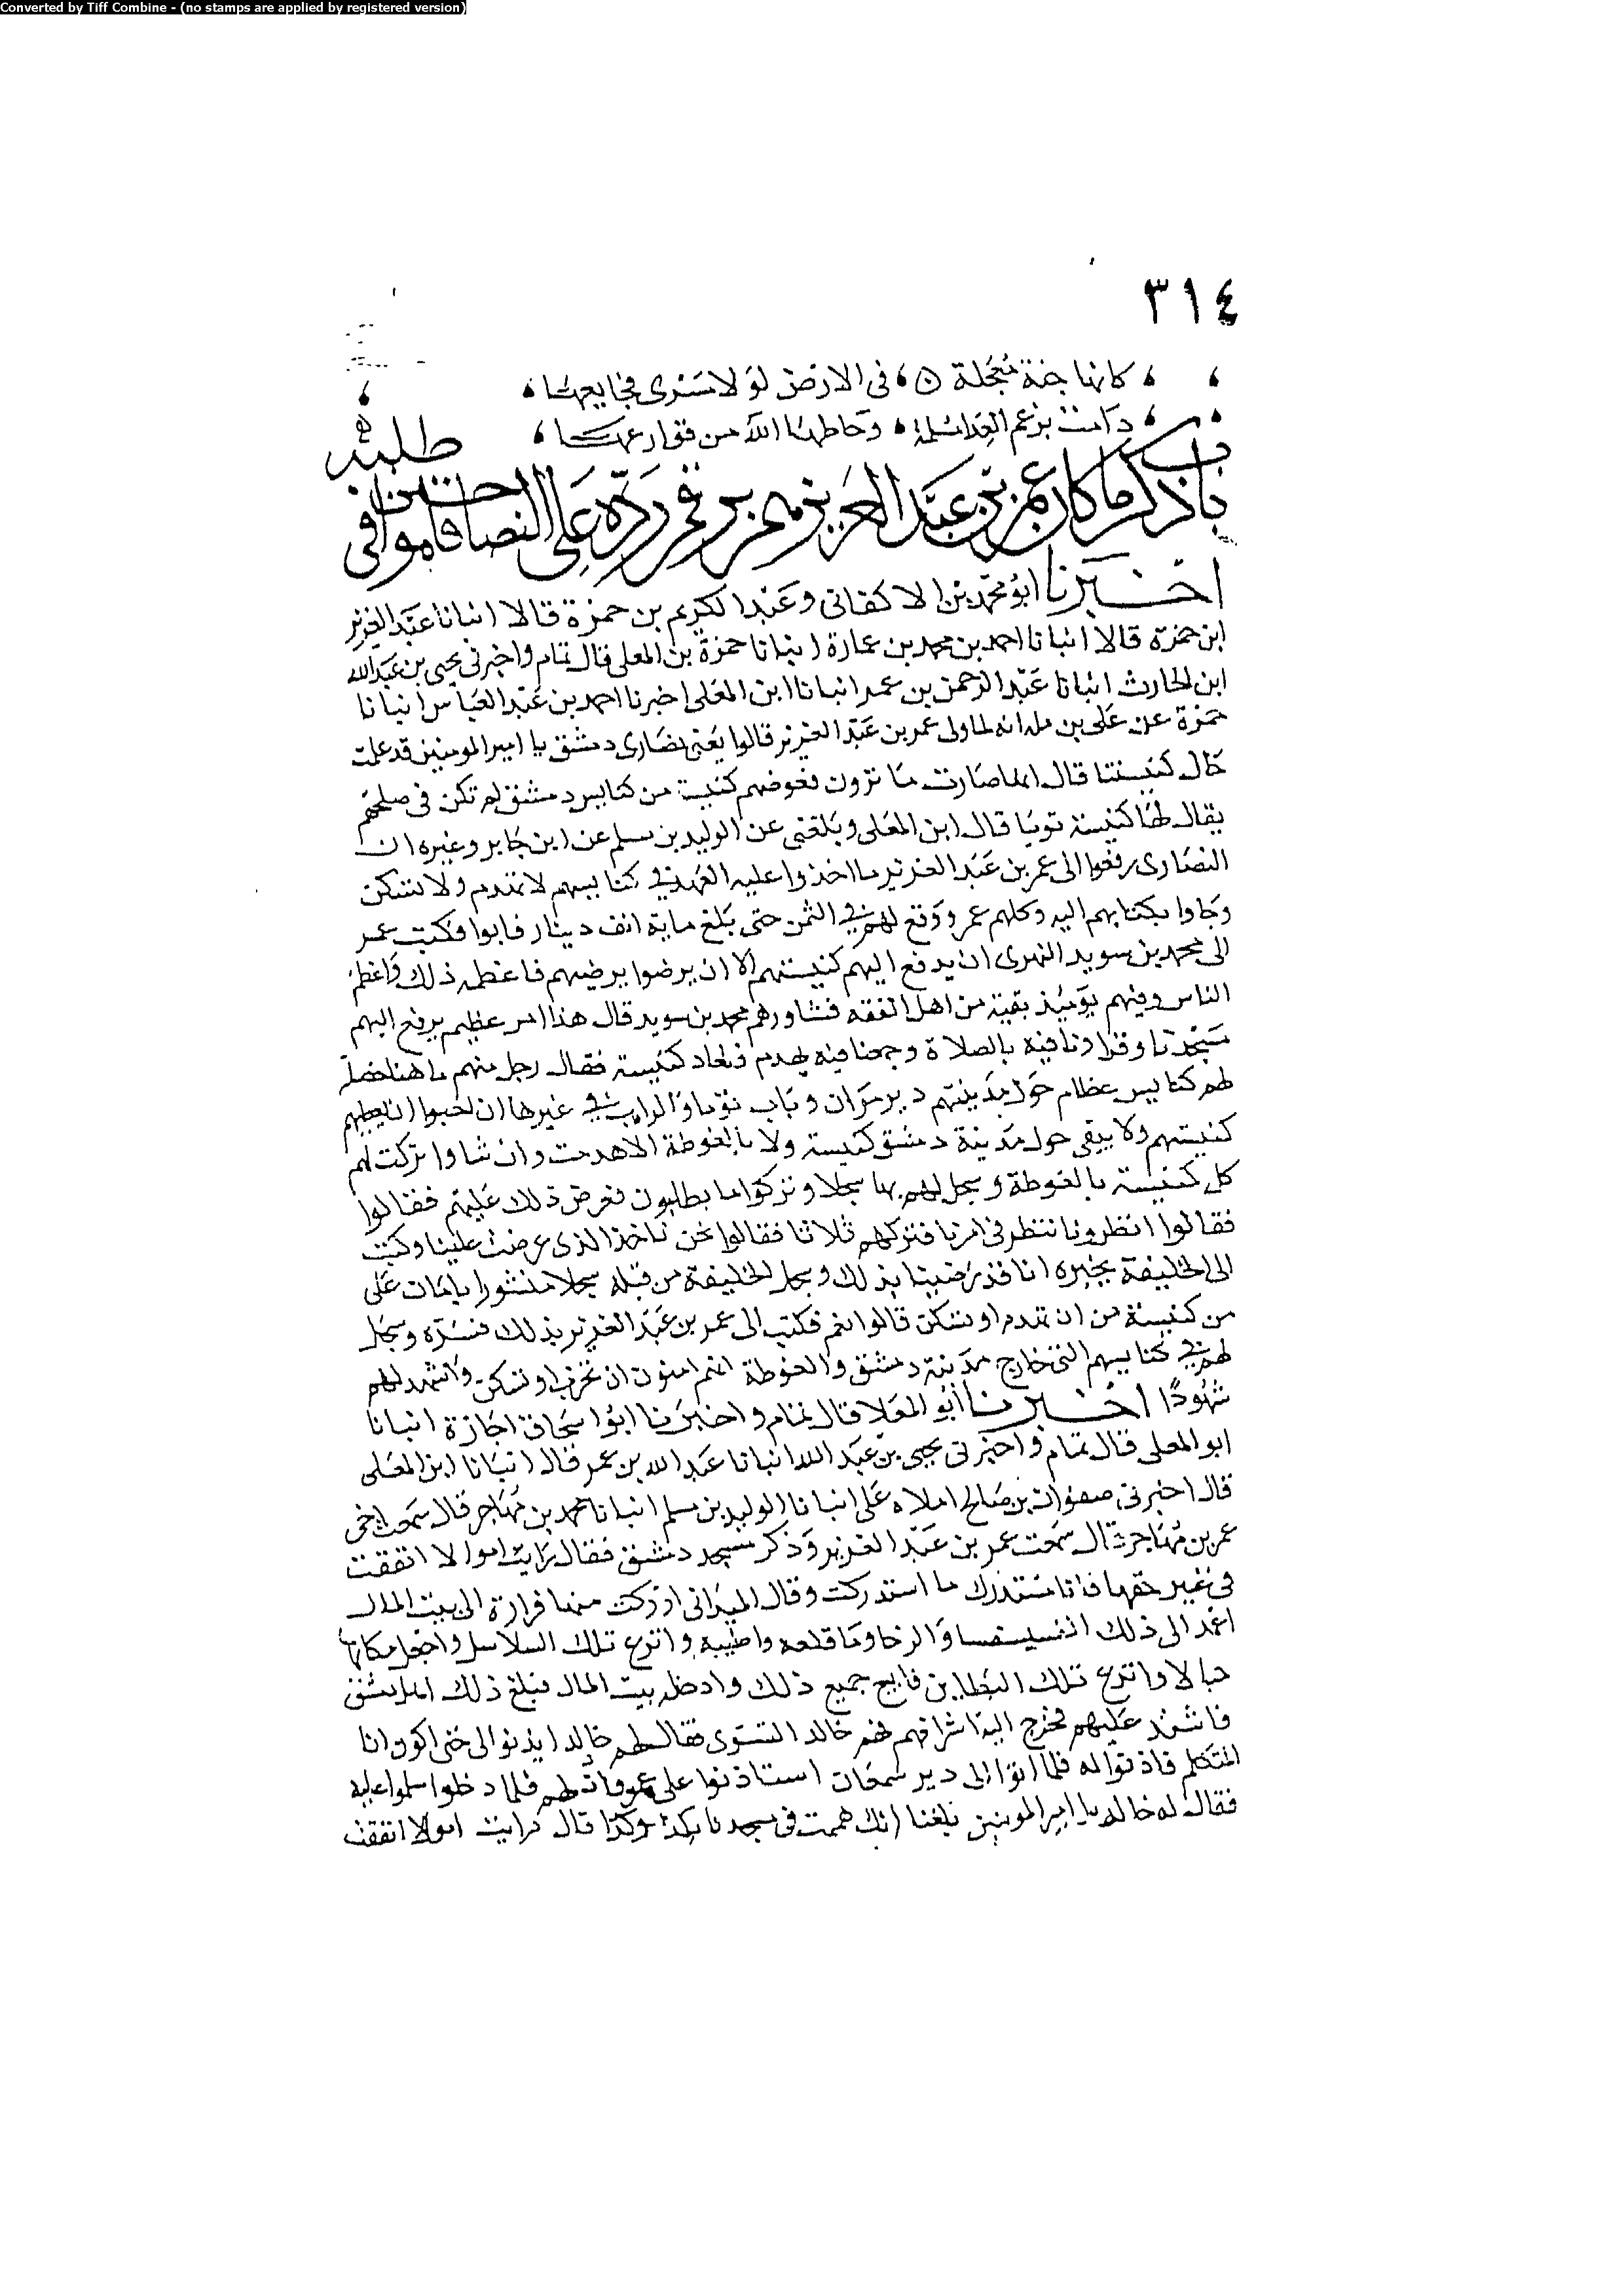 Converted by Tiff Combine - (no stamps are applied by registered version)
٣١٤
كانها جنة معجلة في الارض لولا سرى فجايعها
دامت برغم العدا سلمة وحاطها الله من قوارعها
باب ذكر ما كان عمر بن عبد العزيز في رده على النصارى حين قاموا في طلبه
اخبرنا ابو محمد بن الاكفاني وعبد الكريم بن حمزة قالا انبانا عبد العزيز
ابن حمزة قالا انبانا احمد بن محمد بن عمارة انبانا حمزة بن المعلى قال تمام واخبرني يحيى بن عبد الله
ابن الحارث انبانا عبد الرحمن بن عمر انبانا ابن المعلى اخبرنا احمد بن عبد العباس انبانا
حمزة عن على بن انه لما ولى عمر بن عبد العزيز قالوا يعني نصارى دمشق يا امير المومنين قد علمت
حال كنيستنا قال انها صارت ما ترون فعوضهم كنيسة من كنايس دمشق لم تكن في صلحهم
يقال لها كنيسة توما قال ابن المعلى وبلغني عن الوليد بن مسلم عن ابن جابر وغيره ان
النصارى رفعوا الى عمر بن عبد العزيز ما اخذوا عليه العهد في كنايسهم لا تهدم ولا تسكن
وجاوا بكتابهم اليه وكلهم عمر ووقع لهم في الثمن حتى بلغ ماية الف دينار فابوا فكتب عمر
الى محمد بن سويد الفهرى ان يدفع اليهم كنيستهم الا ان يرضوا برضيهم فاعظم ذلك واعظم
الناس وفيهم يومئذ بقية من اهل الفقه فشاورهم محمد بن سويد قال هذا امر عظيم يرفع اليهم
مسجدنا وقد اذنا فيه بالصلاة وجمعنا فيه يهدم فيعاد كنيسة فقال رجل منهم ها هنا خصلة
لهم كنايس عظام حول مدينتهم دير مران وباب توما والراهب في غيرها ان احبوا ان نعطيهم
كنيستهم ولا يبقى حول مدينة دمشق كنيسة ولا بالغوطة الا هدمت وان شاوا تركت لهم
كل كنيسة بالغوطة وسجل لهم بها سجلا وتركوا ما يطلبون فعرض ذلك عليهم فقالوا
فقالوا انظرونا ننتظر في امرنا فتركهم ثلاثا فقالوا نحن ناخذ الذي عرضت علينا وكتب
الى الخليفة يخبره انا قد رضينا بذلك وسجل الخليفة من قبله سجلا منشورا بامان على
من كنيسة من ان تهدم او تسكن قالوا نعم فكتب الى عمر بن عبد العزيز بذلك فسره وسجل
لهم في كنايسهم التى خارج مدينة دمشق والغوطة انهم امنون ان تخرب او تسكن واشهد لهم
شهودا اخبرنا ابو المعلا قال تمام واخبرنا ابو اسحاق اجازة انبانا
ابو المعلى قال تمام واخبرني يحيى بن عبد الله انبانا عبد الله بن عمر قال انبانا ابن المعلى
قال اخبرني صفوان بن صالح املاه على انبانا الوليد بن مسلم انبانا محمد بن مهاجر قال سمعت اخى
عمر بن مهاجر قال سمعت عمر بن عبد العزيز وذكر مسجد دمشق فقال رايت اموالا انفقت
في غير حقها فانا مستدرك ما استدركت وقال الميداني ادركت منها فرارة الى بيت المال
اعمد الى ذلك الفسيفسا والرخام فاقلعه واطيبه وانزع تلك السلاسل واجعل مكانها
حبالا وانزع تلك البطاين فابيع جميع ذلك وادخله بيت المال فبلغ ذلك اهل دمشق
فاشتد عليهم فخرج اليه اشرافهم فهم خالد القسرى فقال لهم خالد ايذنوا لى حتى اكون انا
المتكلم فاذنوا له فلما اتوا الى دير سمعان استاذنوا على عمر فاذن لهم فلما دخلوا سلموا عليه
فقال له خالد يا امير المومنين بلغنا انك هممت في مسجدنا بكذا وكذا قال رايت اموالا انفقت